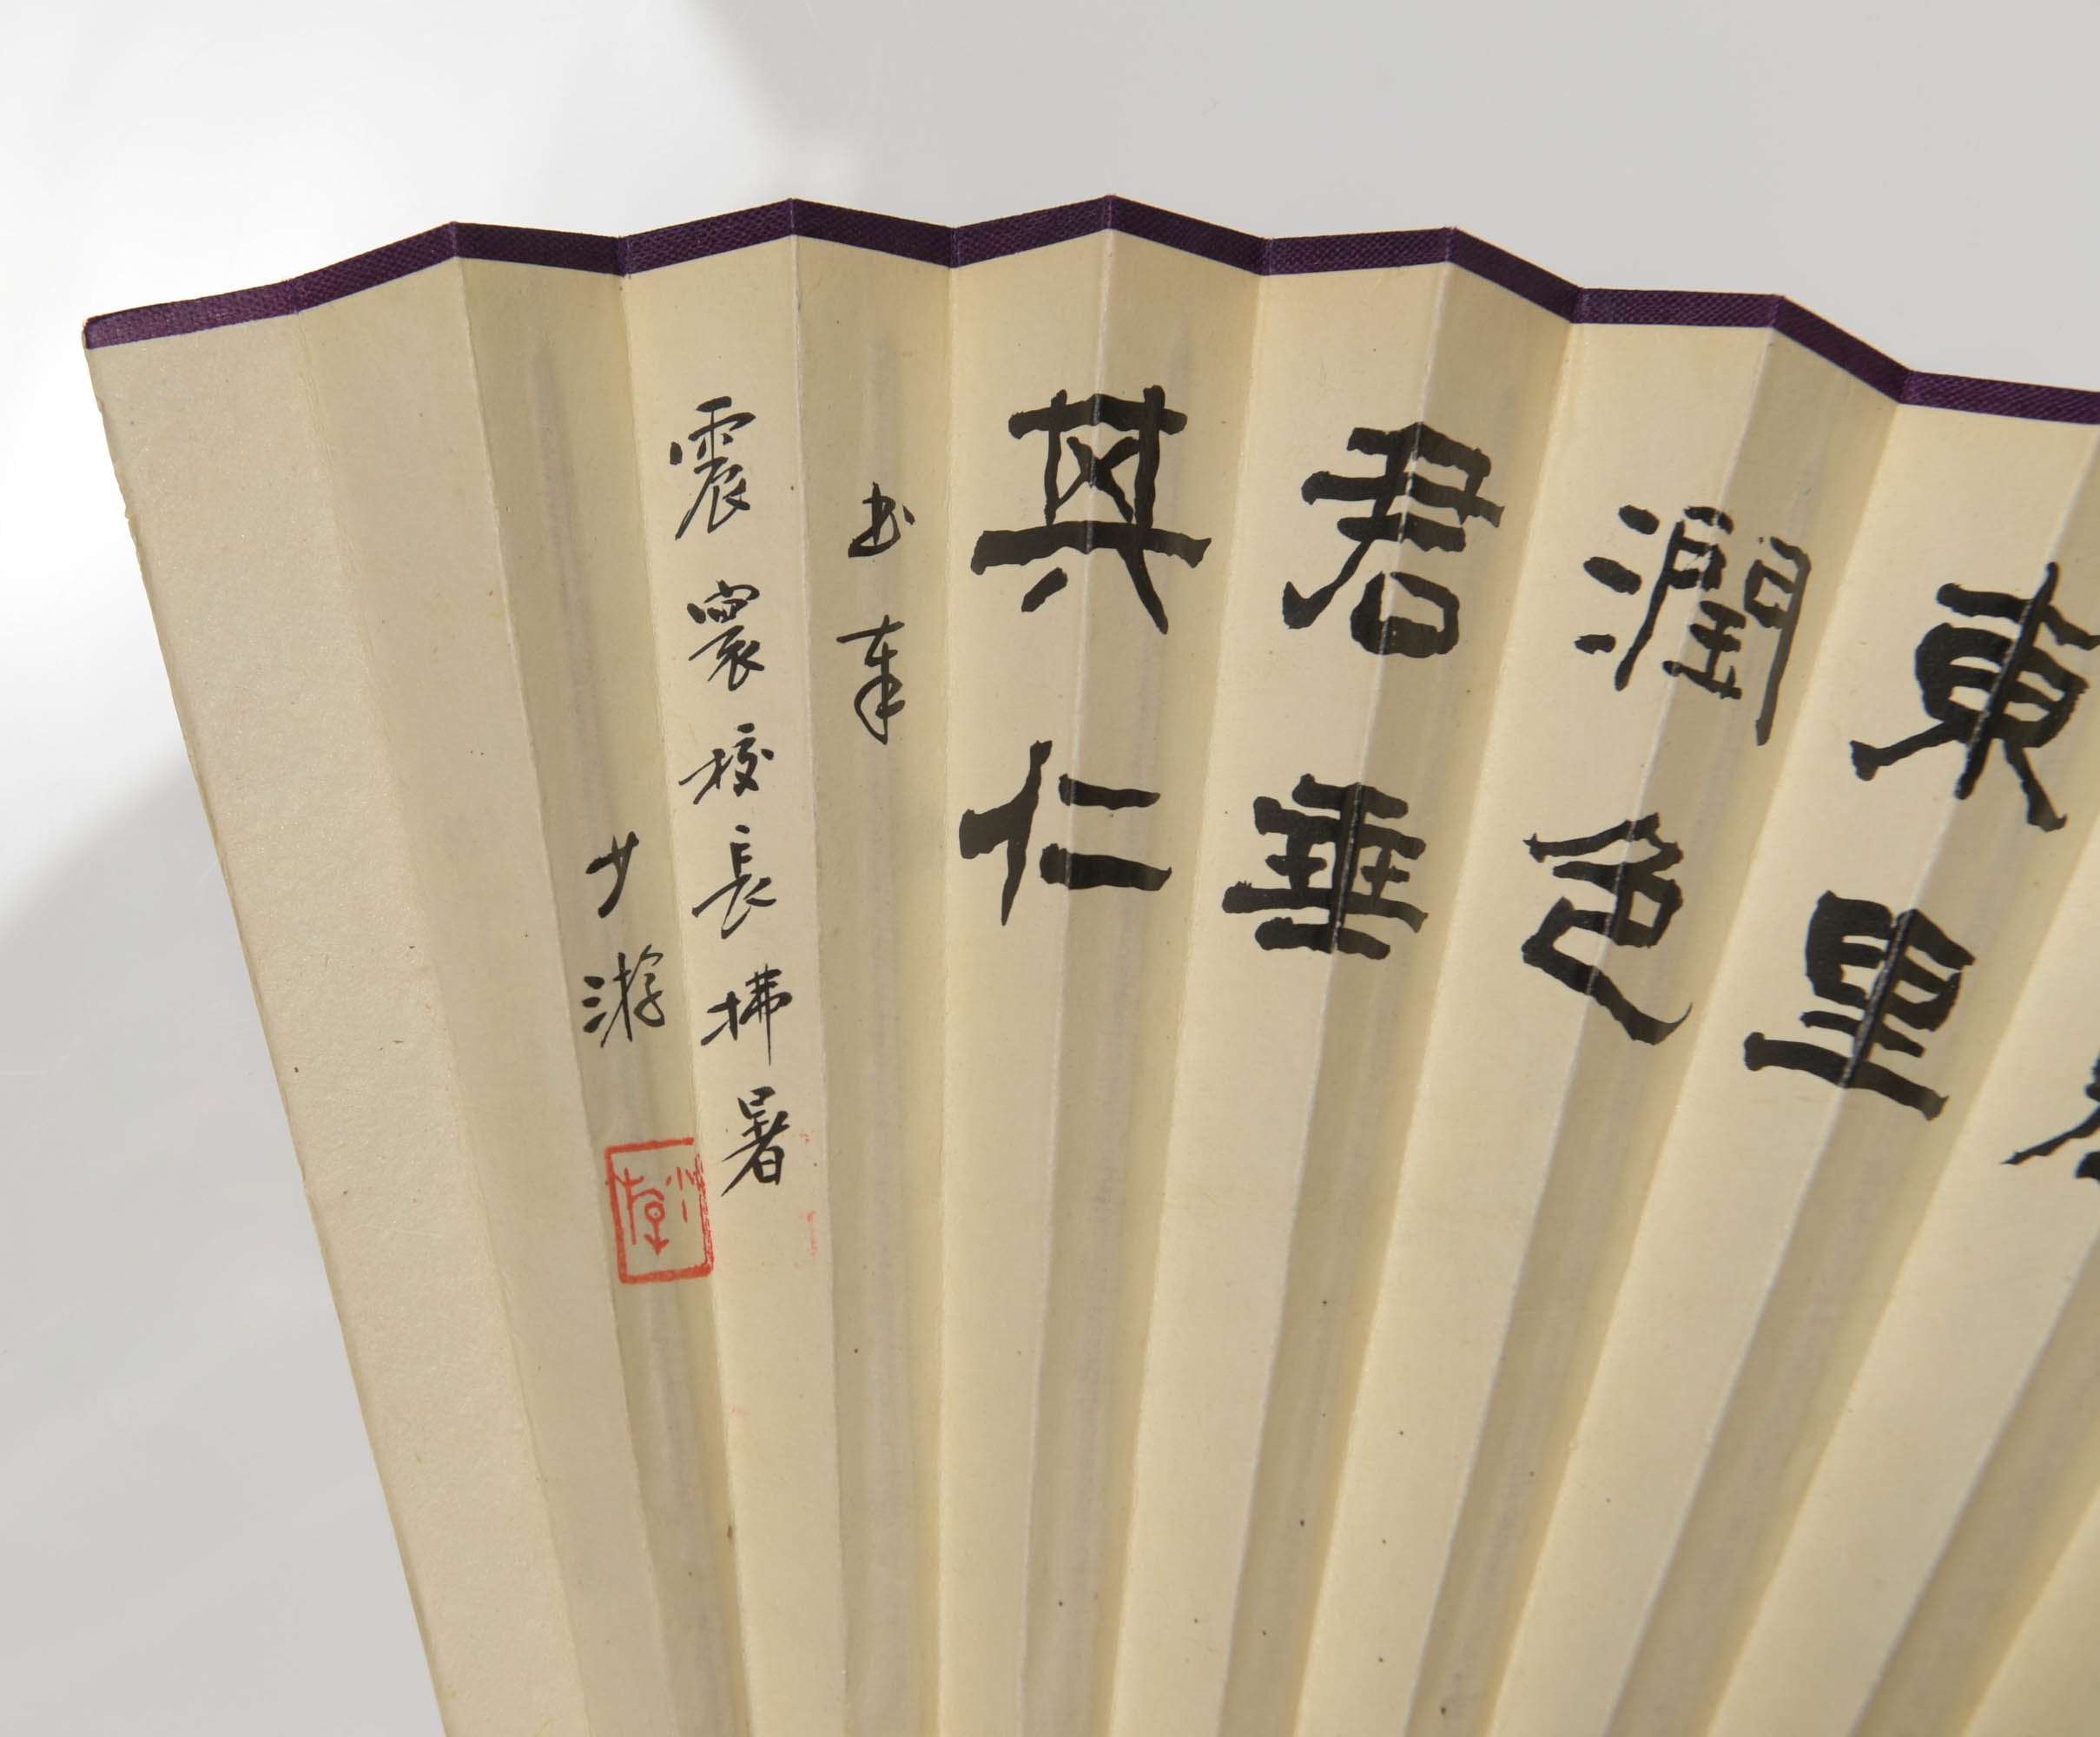 東里
潤色
君垂
其仁
书奉
震寰校长拂暑
少游
少游